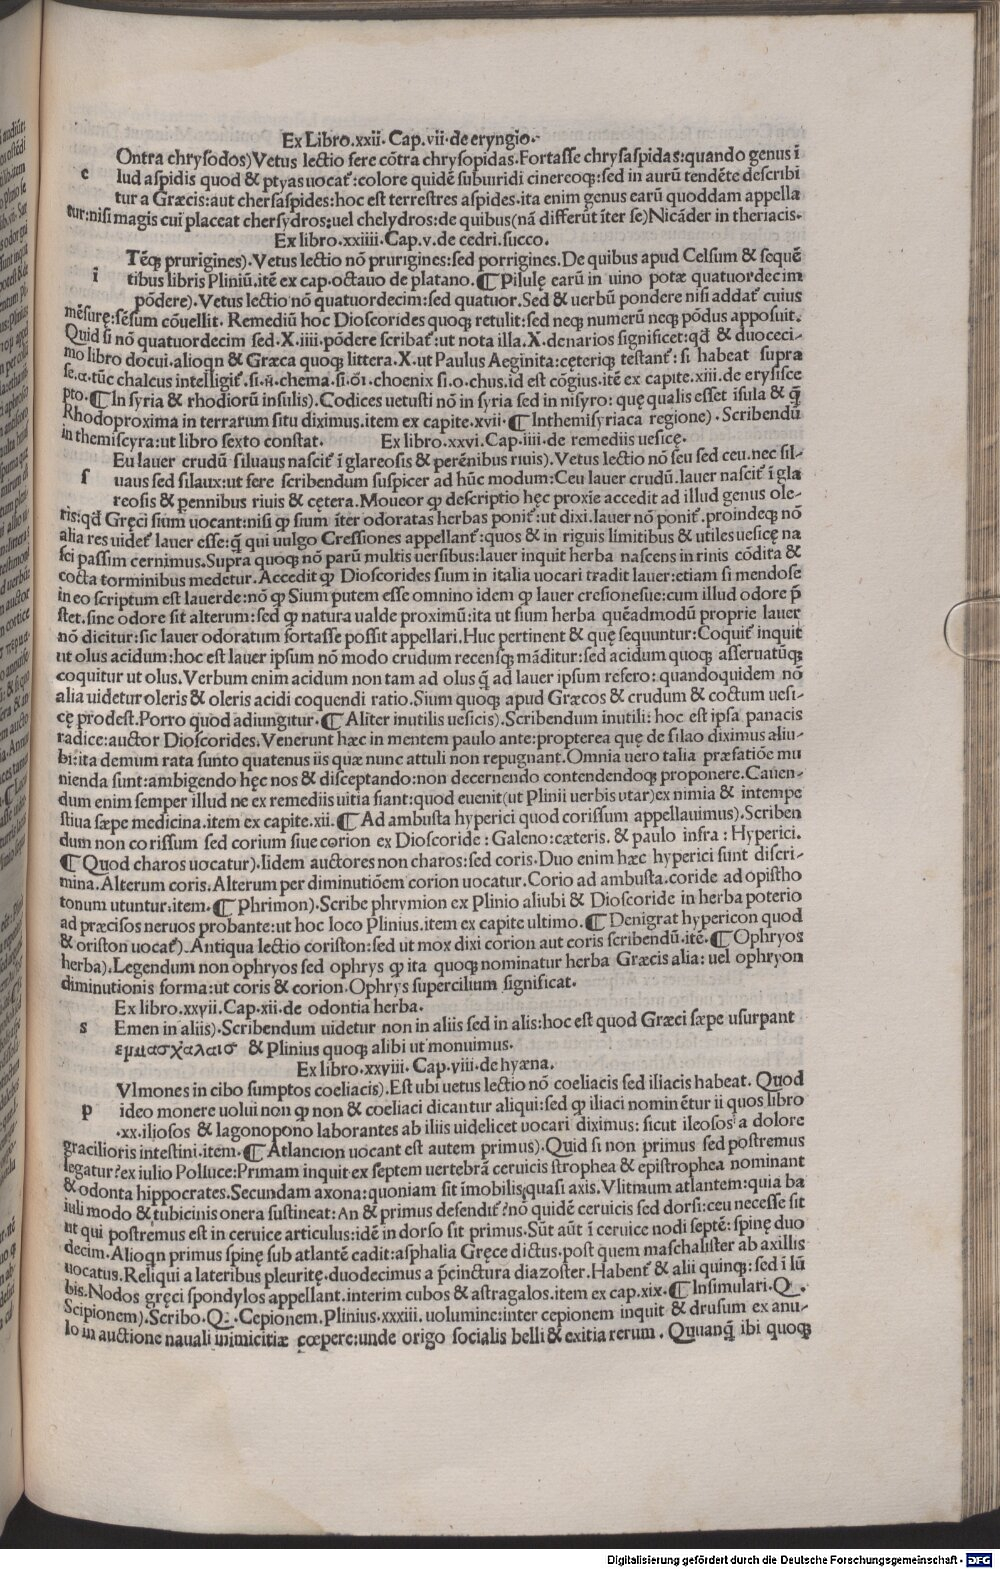 Ex Libro.xxii.Cap.vii.de eryngio.
Ontra chrysodos)Vetus lectio fere cõtra chrysopidas.Fortasse chrysaspidas:quando genus ĩ
c lud aspidis quod & ptyas uocat̃:colore quidẽ subuiridi cinereoq;:sed in aurũ tendẽte describi
tur a Græcis:aut chersaspides:hoc est terrestres aspides.ita enim genus earũ quoddam appella
tur:nisi magis cui placeat chersydros:uel chelydros:de quibus(nã differũt ĩter se)Nicãder in theriacis.
Ex libro.xxiiii.Cap.v.de cedri.succo.
Tẽq; prurigines).Vetus lectio nõ prurigines:sed porrigines.De quibus apud Celsum & sequẽ
i tibus libris Pliniũ.itẽ ex cap.octauo de platano.¶Pilulę earũ in uino potæ quatuordecim
põdere).Vetus lectio nõ quatuordecim:sed quatuor.Sed & uerbũ pondere nisi addat̃ cuius
mẽsurę:sẽsum cõuellit.Remediũ hoc Dioscorides quoq; retulit:sed neq; numerũ neq; põdus apposuit.
Quid si nõ quatuordecim sed.X.iiii.põdere scribat̃:ut nota illa.X.denarios significet:qđ & duoceci-
mo libro docui.alioqn & Græca quoq; littera.X.ut Paulus Aeginita:cęteriq; testant̃:si habeat supra
se.α.tũc chalcus intelligit̃.si.η̃.chema.si.õĩ.choenix si.o.chus.id est cõgius.itẽ ex capite.xiii.de erysisce
pto.¶In syria & rhodiorũ insulis).Codices uetusti nõ in syria sed in nisyro:quę qualis esset isula & q̃
Rhodoproxima in terrarum situ diximus.item ex capite.xvii.¶Inthemisyriaca regione).Scribendũ
in themiscyra:ut libro sexto constat. Ex libro.xxvi.Cap.iiii.de remediis uesicę.
Eu lauer crudũ siluaus nascit̃ ĩ glareosis & perẽnibus riuis).Vetus lectio nõ seu sed ceu.nec sil-
f uaus sed silaux:ut fere scribendum suspicer ad hũc modum:Ceu lauer crudũ.lauer nascit̃ ĩ gla
reosis & pennibus riuis & cętera.Moueor ꝙ descriptio hęc proxie accedit ad illud genus ole-
ris:qđ Gręci sium uocant:nisi ꝙ sium ĩter odoratas herbas ponit̃:ut dixi.lauer nõ ponit̃.proindeq; nõ
alia res uidet̃ lauer esse:q̃ qui uulgo Cressiones appellant̃:quos & in riguis limitibus & utiles uesicę na
sci passim cernimus.Supra quoq; nõ parũ multis uersibus:lauer inquit herba nascens in rinis cõdita &
cocta torminibus medetur.Accedit ꝙ Dioscorides sium in italia uocari tradit lauer:etiam si mendose
in eo scriptum est lauerde:nõ ꝙ Sium putem esse omnino idem ꝙ lauer cresionesue:cum illud odore p̃
stet.sine odore sit alterum:sed ꝙ natura ualde proximũ:ita ut sium herba quẽadmodũ proprie lauer
nõ dicitur:sic lauer odoratum fortasse possit appellari.Huc pertinent & quę sequuntur:Coquit̃ inquit
ut olus acidum:hoc est lauer ipsum nõ modo crudum recensq; mãditur:sed acidum quoq; asseruatũq;
coquitur ut olus.Verbum enim acidum non tam ad olus q̃ ad lauer ipsum refero:quandoquidem nõ
alia uidetur oleris & oleris acidi coquendi ratio.Sium quoq; apud Græcos & crudum & coctum uesi-
cę prodest.Porro quod adiungitur.¶Aliter inutilis uesicis).Scribendum inutili:hoc est ipsa panacis
radice:auctor Dioscorides.Venerunt hæc in mentem paulo ante:propterea quę de silao diximus aliu-
bi:ita demum rata sunto quatenus iis quæ nunc attuli non repugnant.Omnia uero talia præfatiõe mu
nienda sunt:ambigendo hęc nos & disceptando:non decernendo contendendoq; proponere.Cauen-
dum enim semper illud ne ex remediis uitia fiant:quod euenit(ut Plinii uerbis utar)ex nimia & intempe
stiua sæpe medicina.item ex capite.xii.¶Ad ambusta hyperici quod corissum appellauimus).Scriben
dum non corissum sed corium siue corion ex Dioscoride:Galeno:cæteris.& paulo infra:Hyperici.
¶Quod charos uocatur).Iidem auctores non charos:sed coris.Duo enim hæc hyperici sunt discri-
mina.Alterum coris.Alterum per diminutiõem corion uocatur.Corio ad ambusta.coride ad opistho
tonum utuntur.item.¶Phrimon).Scribe phrymion ex Plinio aliubi & Dioscoride in herba poterio
ad præcisos neruos probante:ut hoc loco Plinius.item ex capite ultimo.¶Denigrat hypericon quod
& oriston uocat̃).Antiqua lectio coriston:sed ut mox dixi corion aut coris scribendũ.itẽ.¶Ophryos
herba).Legendum non ophryos sed ophrys ꝙ ita quoq; nominatur herba Græcis alia:uel ophryon
diminutionis forma:ut coris & corion.Ophrys supercilium significat.
Ex libro.xxvii.Cap.xii.de odontia herba.
s Emen in aliis).Scribendum uidetur non in aliis sed in alis:hoc est quod Græci sæpe usurpant
εμμασχ̓αλαισ & Plinius quoq; alibi ut monuimus.
Ex libro.xxviii.Cap.viii.de hyæna.
Vlmones in cibo sumptos coeliacis).Est ubi uetus lectio nõ coeliacis sed iliacis habeat.Quod
p ideo monere uolui non ꝙ non & coeliaci dicantur aliqui:sed ꝙ iliaci nominẽtur ii quos libro
.xx.iliosos & lagonopono laborantes ab iliis uidelicet uocari diximus:sicut ileosos a dolore
gracilioris intestini.item.¶Atlancion uocant est autem primus).Quid si non primus sed postremus
legatur?ex iulio Polluce:Primam inquit ex septem uertebrã ceruicis strophea & epistrophea nominant
& odonta hippocrates.Secundam axona:quoniam sit ĩmobilis;quasi axis.Vlitmum atlantem:quia ba
iuli modo & tubicinis onera sustineat:An & primus defendit̃?nõ quidẽ ceruicis sed dorsi:ceu necesse sit
ut qui postremus est in ceruice articulus:idẽ in dorso sit primus.Sũt aũt ĩ ceruice nodi septẽ:spinę duo
decim.Alioqn primus spinę sub atlantẽ cadit:asphalia Gręce dictus.post quem maschalister ab axillis
uocatus.Reliqui a lateribus pleuritę.duodecimus a p̃cinctura diazoster.Habent̃ & alii quinq;:sed ĩ lũ
bis.Nodos gręci spondylos appellant.interim cubos & astragalos.item ex cap.xix.¶Insimulari.Q.
Scipionem).Scribo.Q.Cepionem.Plinius.xxxiii.uolumine:inter cepionem inquit & drusum ex anu-
lo in auctione nauali inimicitiæ cœpere:unde origo socialis belli & exitia rerum.Quuanq̃ ibi quoq;
Digitalisierung gefördert durch die Deutsche Forschungsgemeinschaft - DFG